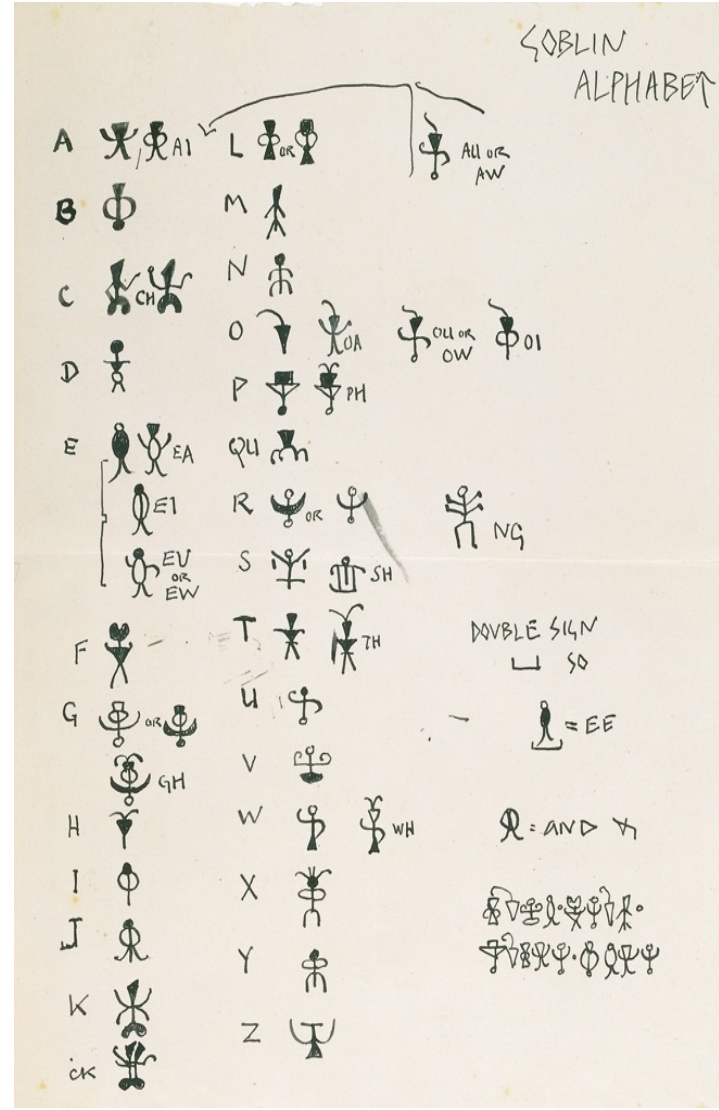 GOBLIN
ALPHABET
A , AI
B
C CH
D
E EA
EI
EU
OR
EW
F
G OR
GH
H
I
J
K
CK
L OR
AU OR
AW
M
N
O OA OU OR
OW OI
P PH
QU
R OR
NG
S SH
T TH
U
V
W WH
X
Y
Z
DOUBLE SIGN
SO
= EE
= AND